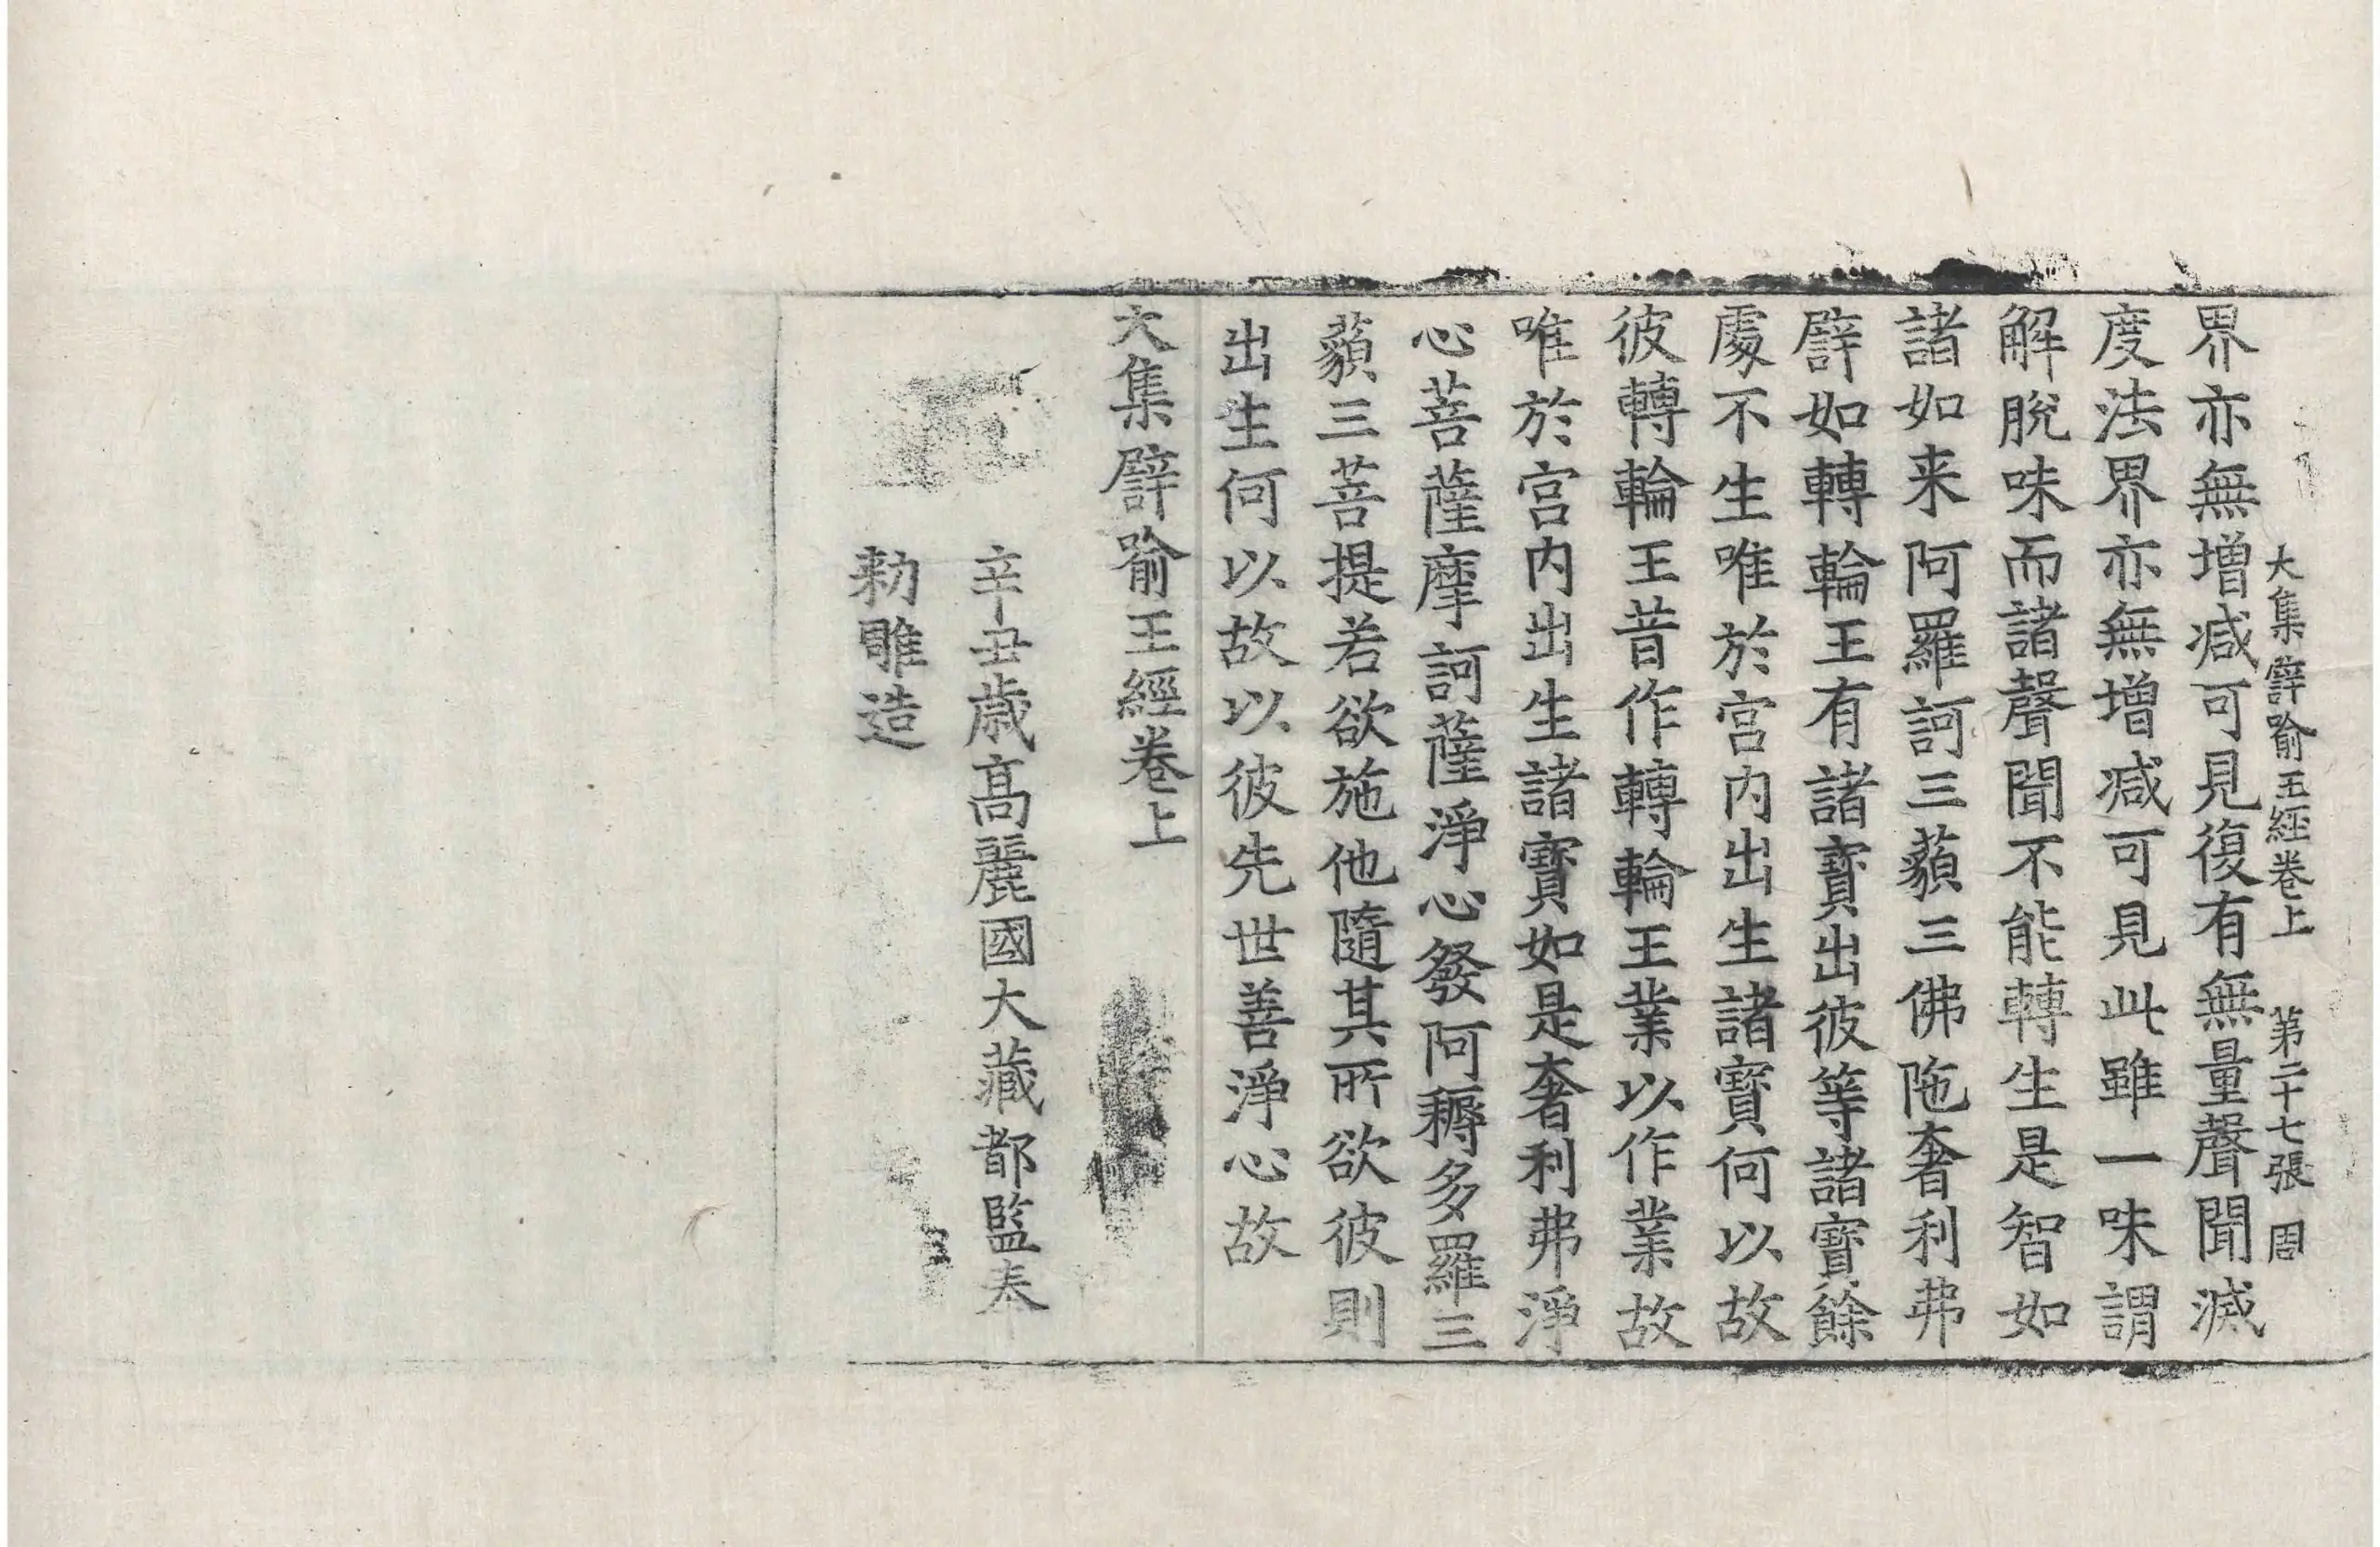 大集譬喻王經卷上　第二十七張　周
界亦無增減可見復有無量聲聞滅
度法界亦無增減可見此雖一味謂
解脫味而諸聲聞不能轉生是智如
諸如来阿羅訶三藐三佛陁奢利弗
譬如轉輪王有諸寶出彼等諸寶餘
處不生唯於宮內出生諸寶何以故
彼轉輪王昔作轉輪王業以作業故
唯於宮內出生諸寶如是奢利弗淨
心菩薩摩訶薩淨心發阿耨多羅三
藐三菩提若欲施他隨其所欲彼則
出生何以故以彼先世善淨心故
大集譬喻王經卷上
辛丑歲高麗國大藏都監奉
勅雕造